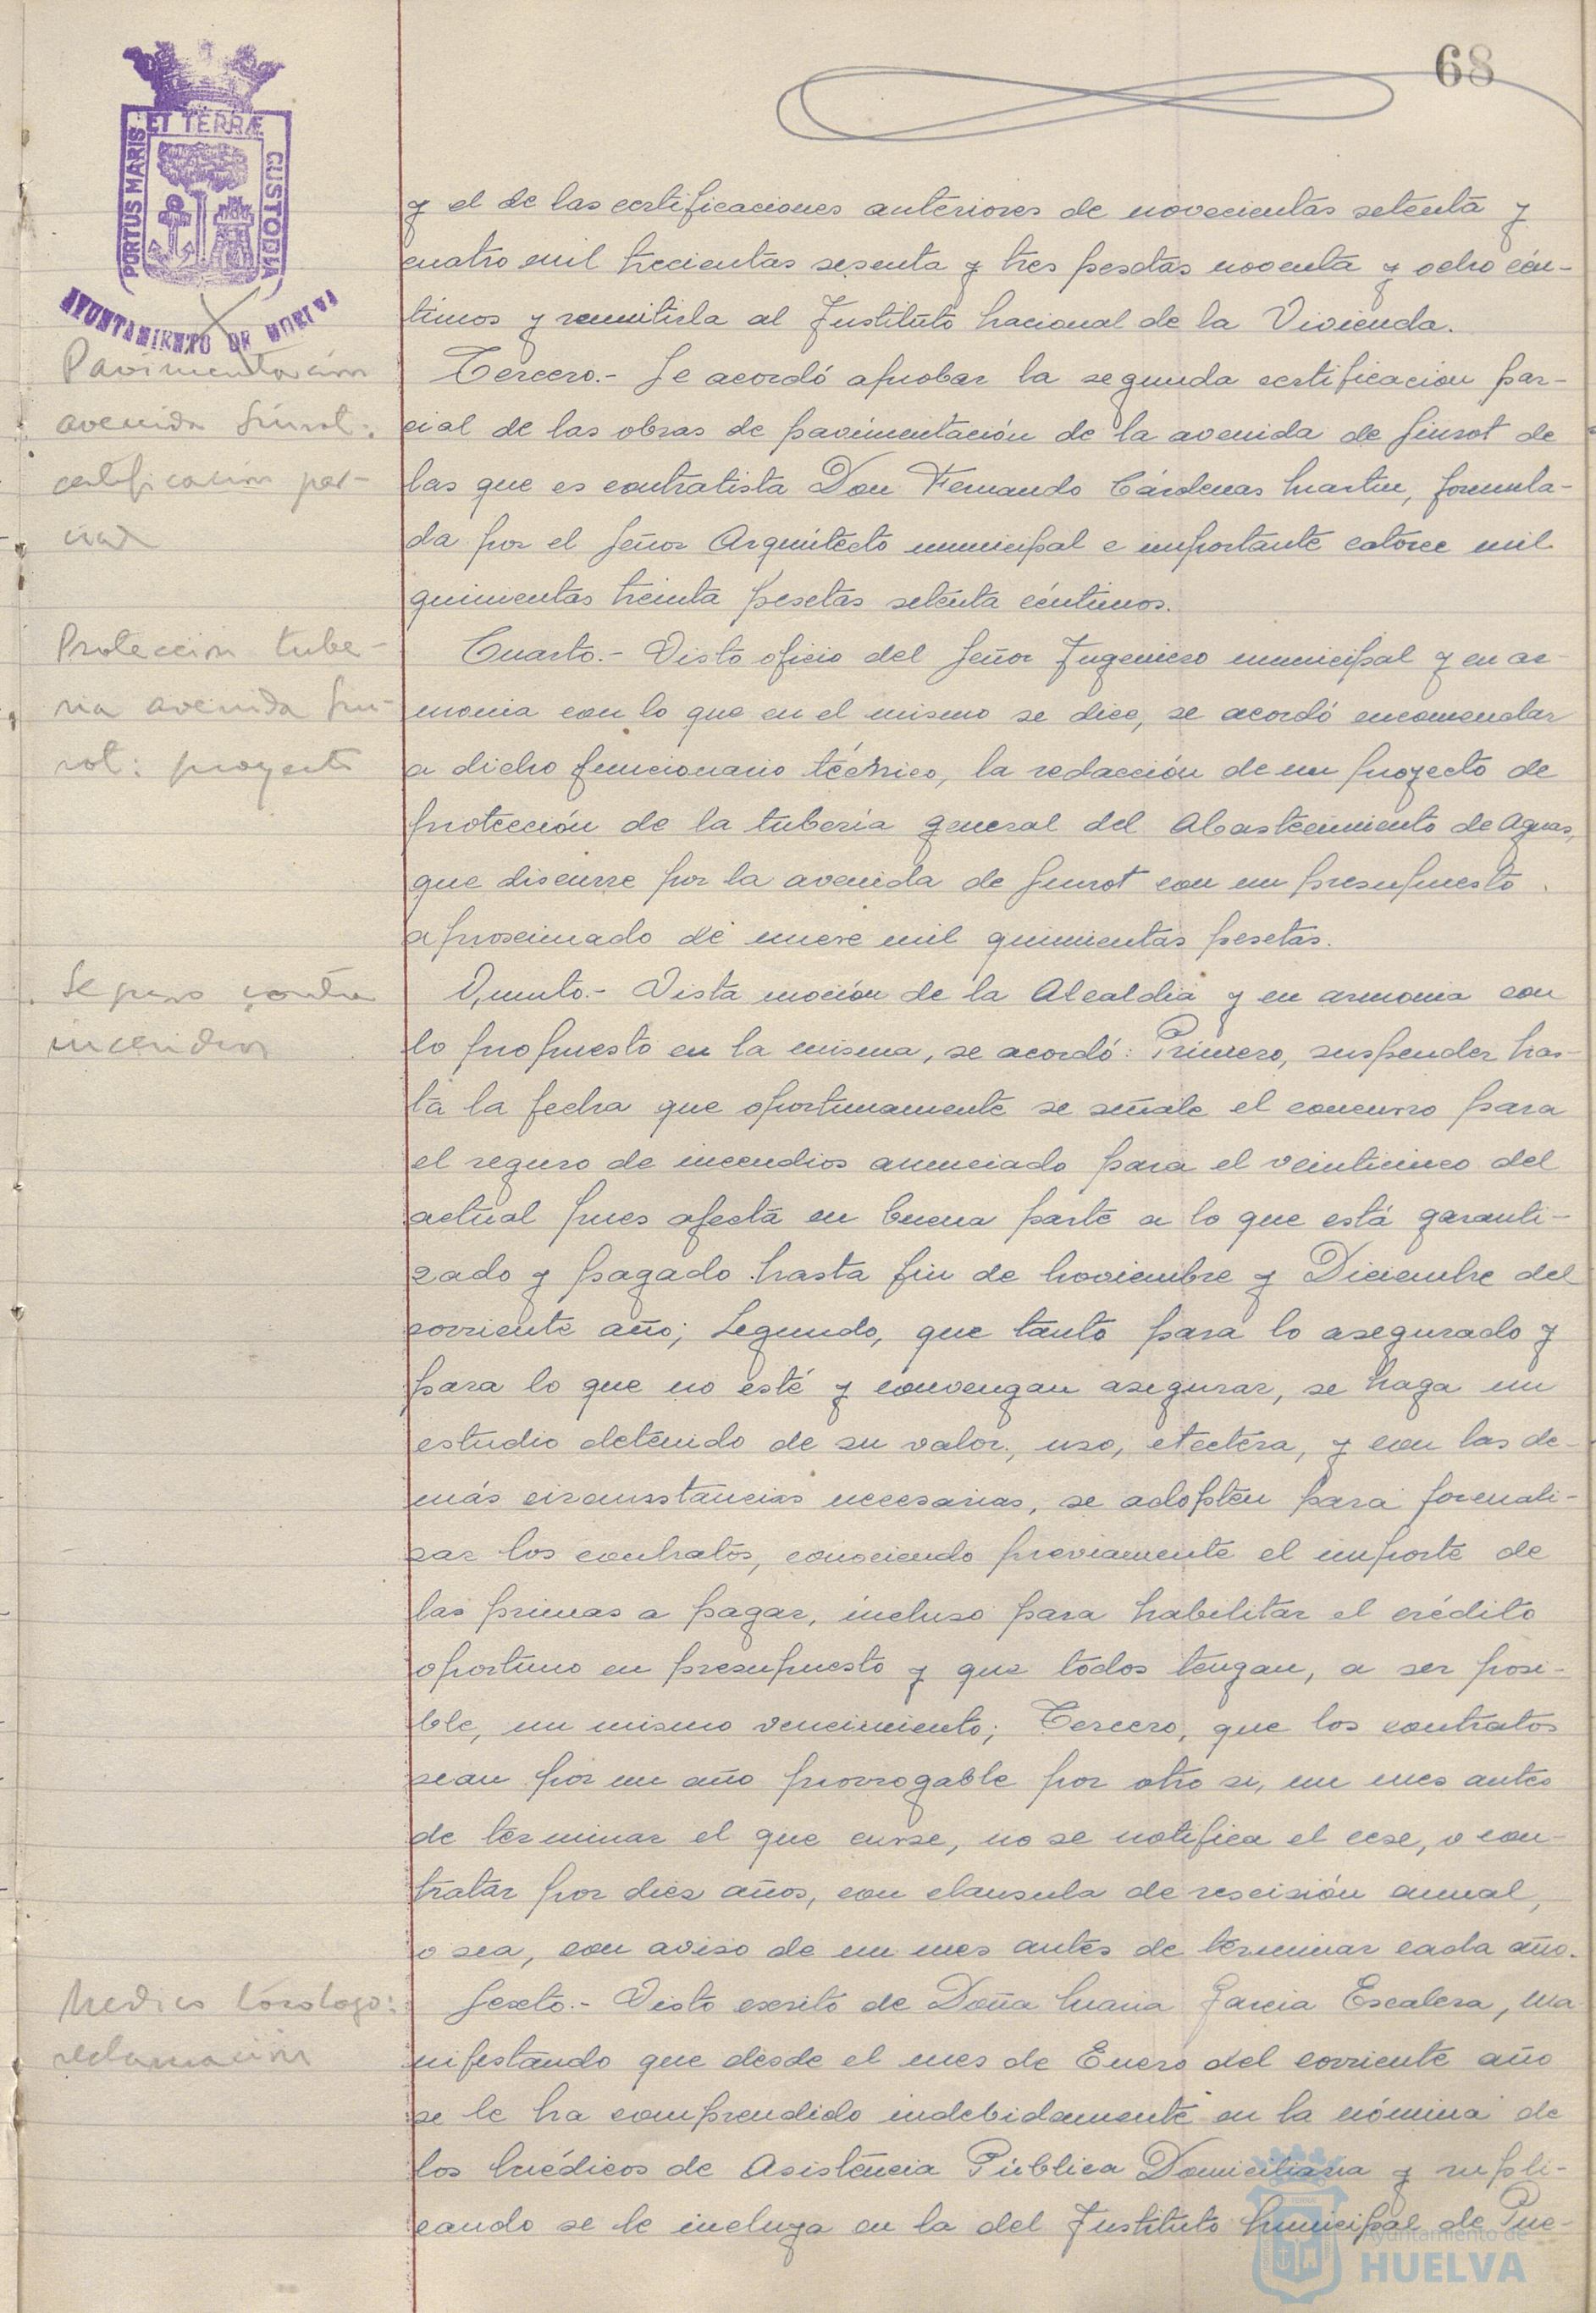 68
PORTUS MARIS ET TERRÆ CUSTODIA
AYUNTAMIENTO DE HUELVA
y el de las certificaciones anteriores de novecientas setenta y
cuatro mil trecientas sesenta y tres pesetas noventa y ocho cén-
timos y remitirla al Instituto Nacional de la Vivienda.
Pavimentación
avenida Guirot:
certificación par-
cial
Tercero.- Se acordó aprobar la segunda certificación par-
cial de las obras de pavimentación de la avenida de Guirot de
las que es contratista Don Fernando Cárdenas Martin, formula-
da por el Señor Arquitecto municipal e importante catorce mil
quinientas treinta pesetas setenta céntimos.
Proteccion tube-
ria avenida Gui-
rot: proyecto
Cuarto.- Visto oficio del Señor Ingeniero municipal y en ar-
monia con lo que en el mismo se dice, se acordó encomendar
a dicho funcionario técnico, la redacción de un proyecto de
protección de la tuberia general del Abastecimiento de Aguas,
que discurre por la avenida de Guirot con un presupuesto
aproximado de nueve mil quinientas pesetas.
Seguro contra
incendios
Quinto.- Vista moción de la Alcaldia y en armonia con
lo propuesto en la misma, se acordó: Primero, suspender has-
ta la fecha que oportunamente se señale el concurso para
el seguro de incendios anunciado para el veinticinco del
actual pues afecta en buena parte a lo que está garanti-
zado y pagado hasta fin de Noviembre y Diciembre del
corriente año; Segundo, que tanto para lo asegurado y
para lo que no esté y convengan asegurar, se haga un
estudio detenido de su valor, uso, etectéra, y con las de-
más circunstancias necesarias, se adopten para formali-
zar los contratos, conociendo previamente el importe de
las primas a pagar, incluso para habilitar el crédito
oportuno en presupuesto y que todos tengan, a ser posi-
ble, un mismo vencimiento; Tercero, que los contratos
sean por un año prorrogable por otro si, un mes antes
de terminar el que curse, no se notifica el cese, o con-
tratar por diez años, con clausula de rescisión anual,
o sea, con aviso de un mes antes de terminar cada año.
Medico Tocologo:
reclamación
Sexto.- Visto escrito de Doña Maria Garcia Escalera, ma
nifestando que desde el mes de Enero del corriente año
se le ha comprendido indebidamente en la nómina de
los Médicos de Asistencia Pública Domiciliaria y supli-
cando se le incluya en la del Instituto Municipal de Pue-
Ayuntamiento de
HUELVA